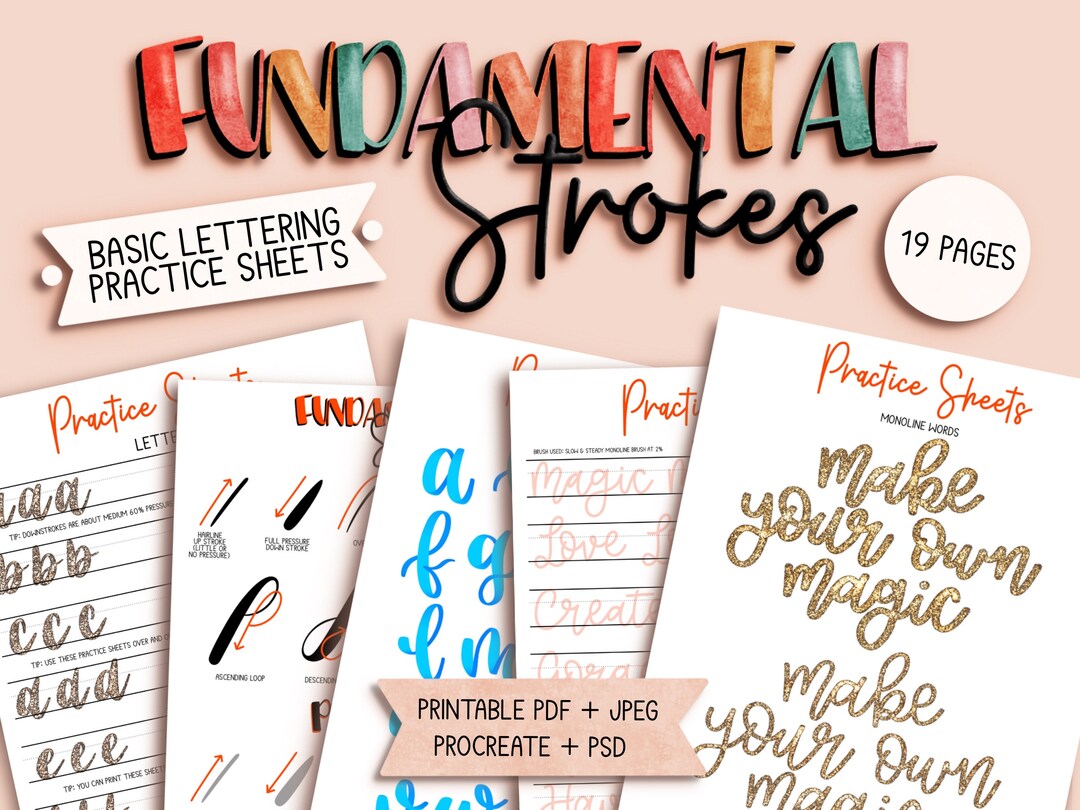 FUNDAMENTAL
Strokes
BASIC LETTERING
PRACTICE SHEETS
19 PAGES
Practice
aaa
TIP: DOWNSTROKES ARE ABOUT MEDIUM 60% PRESSURE
bbb
ccc
TIP: USE THESE PRACTICE SHEETS OVER AND
ddd
eee
TIP: YOU CAN PRINT THESE SHEETS
HAIRLINE
UP STROKE
(LITTLE OR
NO PRESSURE)
FULL PRESSURE
DOWN STROKE
ASCENDING LOOP
a
f g
l m
BRUSH USED: SLOW & STEADY MONOLINE BRUSH AT 2%
Magic
Love
Create
Practice Sheets
MONOLINE WORDS
make
your own
magic
make
your own
magic
PRINTABLE PDF + JPEG
PROCREATE + PSD